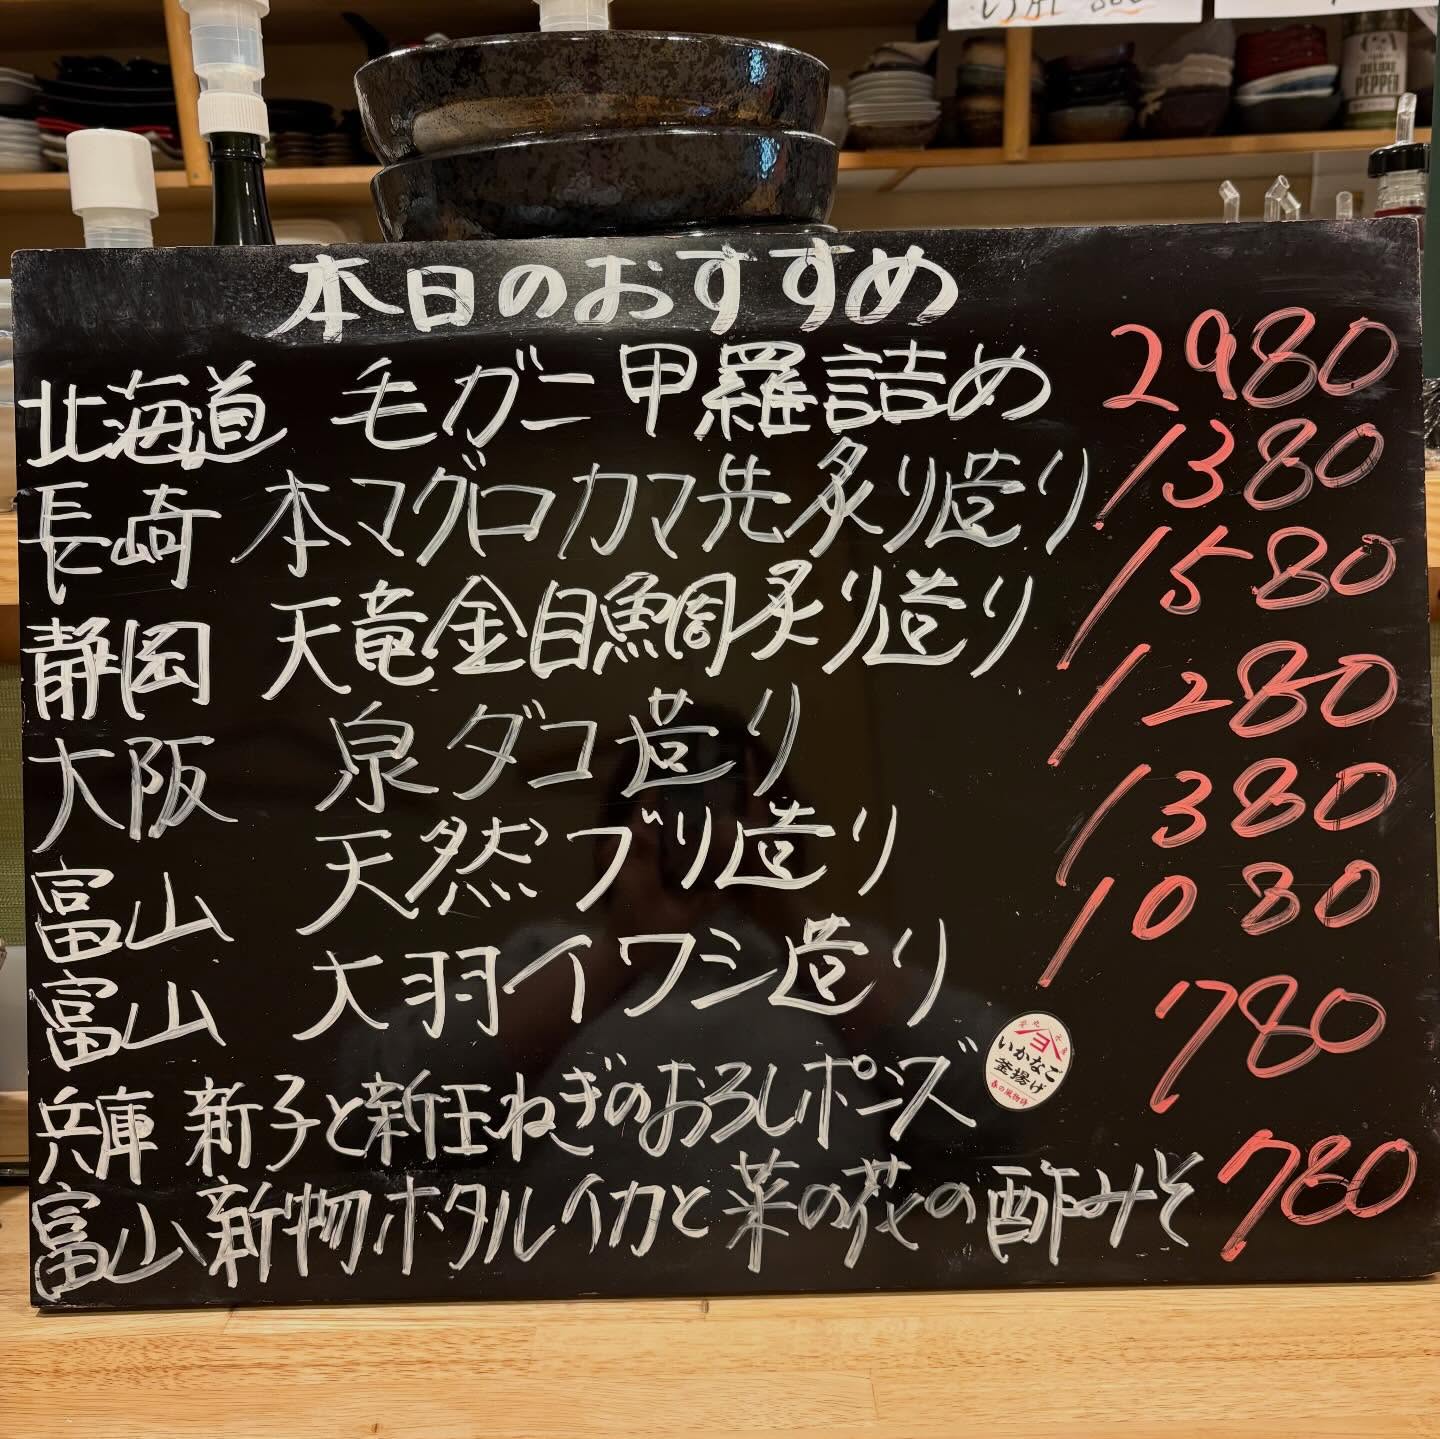 DELUXE
PEPPER
本日のおすすめ
北海道 毛ガニ甲羅詰め 2980
長崎 本マグロカマ先炙り造り 1380
静岡 天竜金目鯛炙り造り 1580
大阪 泉ダコ造り 1280
富山 天然ブリ造り 1380
富山 大羽イワシ造り 1080
兵庫 新子と新玉ねぎのおろしポンズ 780
いかなご
釜揚げ
春の風物詩
富山 新物ホタルイカと菜の花の酢みそ 780